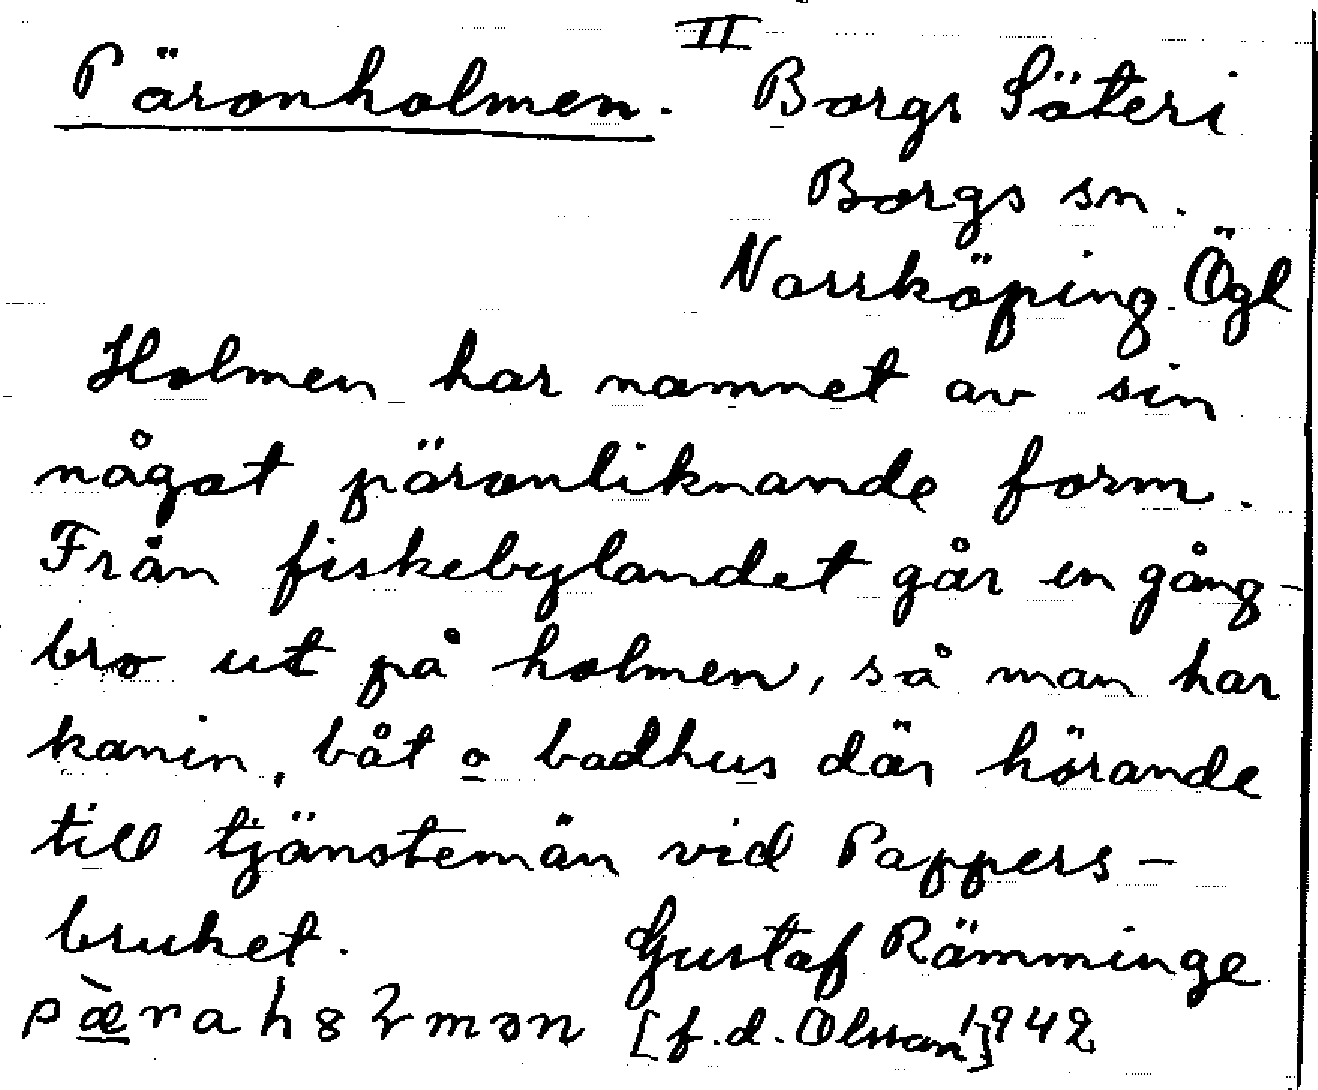 II
Päronholmen. Borgs Säteri
Borgs sn.
Norrköping. Ögl
Holmen har namnet av sin
något päronliknande form.
Från fiskebylandet går en gång-
bro ut på holmen, så man har
kanin, båt o badhus där hörande
till tjänstemän vid Pappers-
bruket. Gustaf Rämminge
[f.d. Olsson] 1942